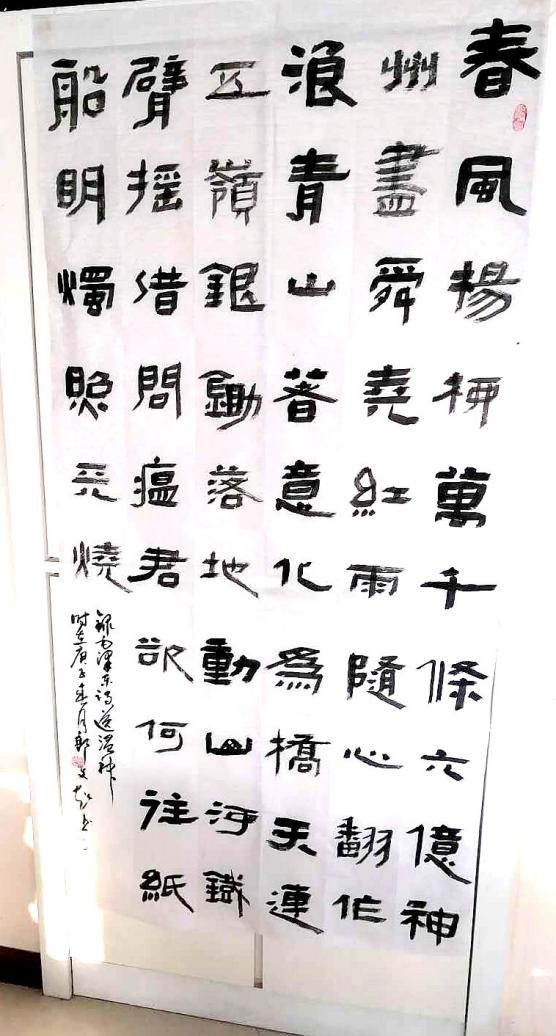 春風楊柳萬千條六億神
州盡舜堯紅雨隨心翻作
浪青山著意化為橋天連
五嶺銀鋤落地動山河鐵
臂搖借問瘟君欲何往紙
船明燭照天燒
錄毛澤東诗送瘟神
时在庚子春月郭文书